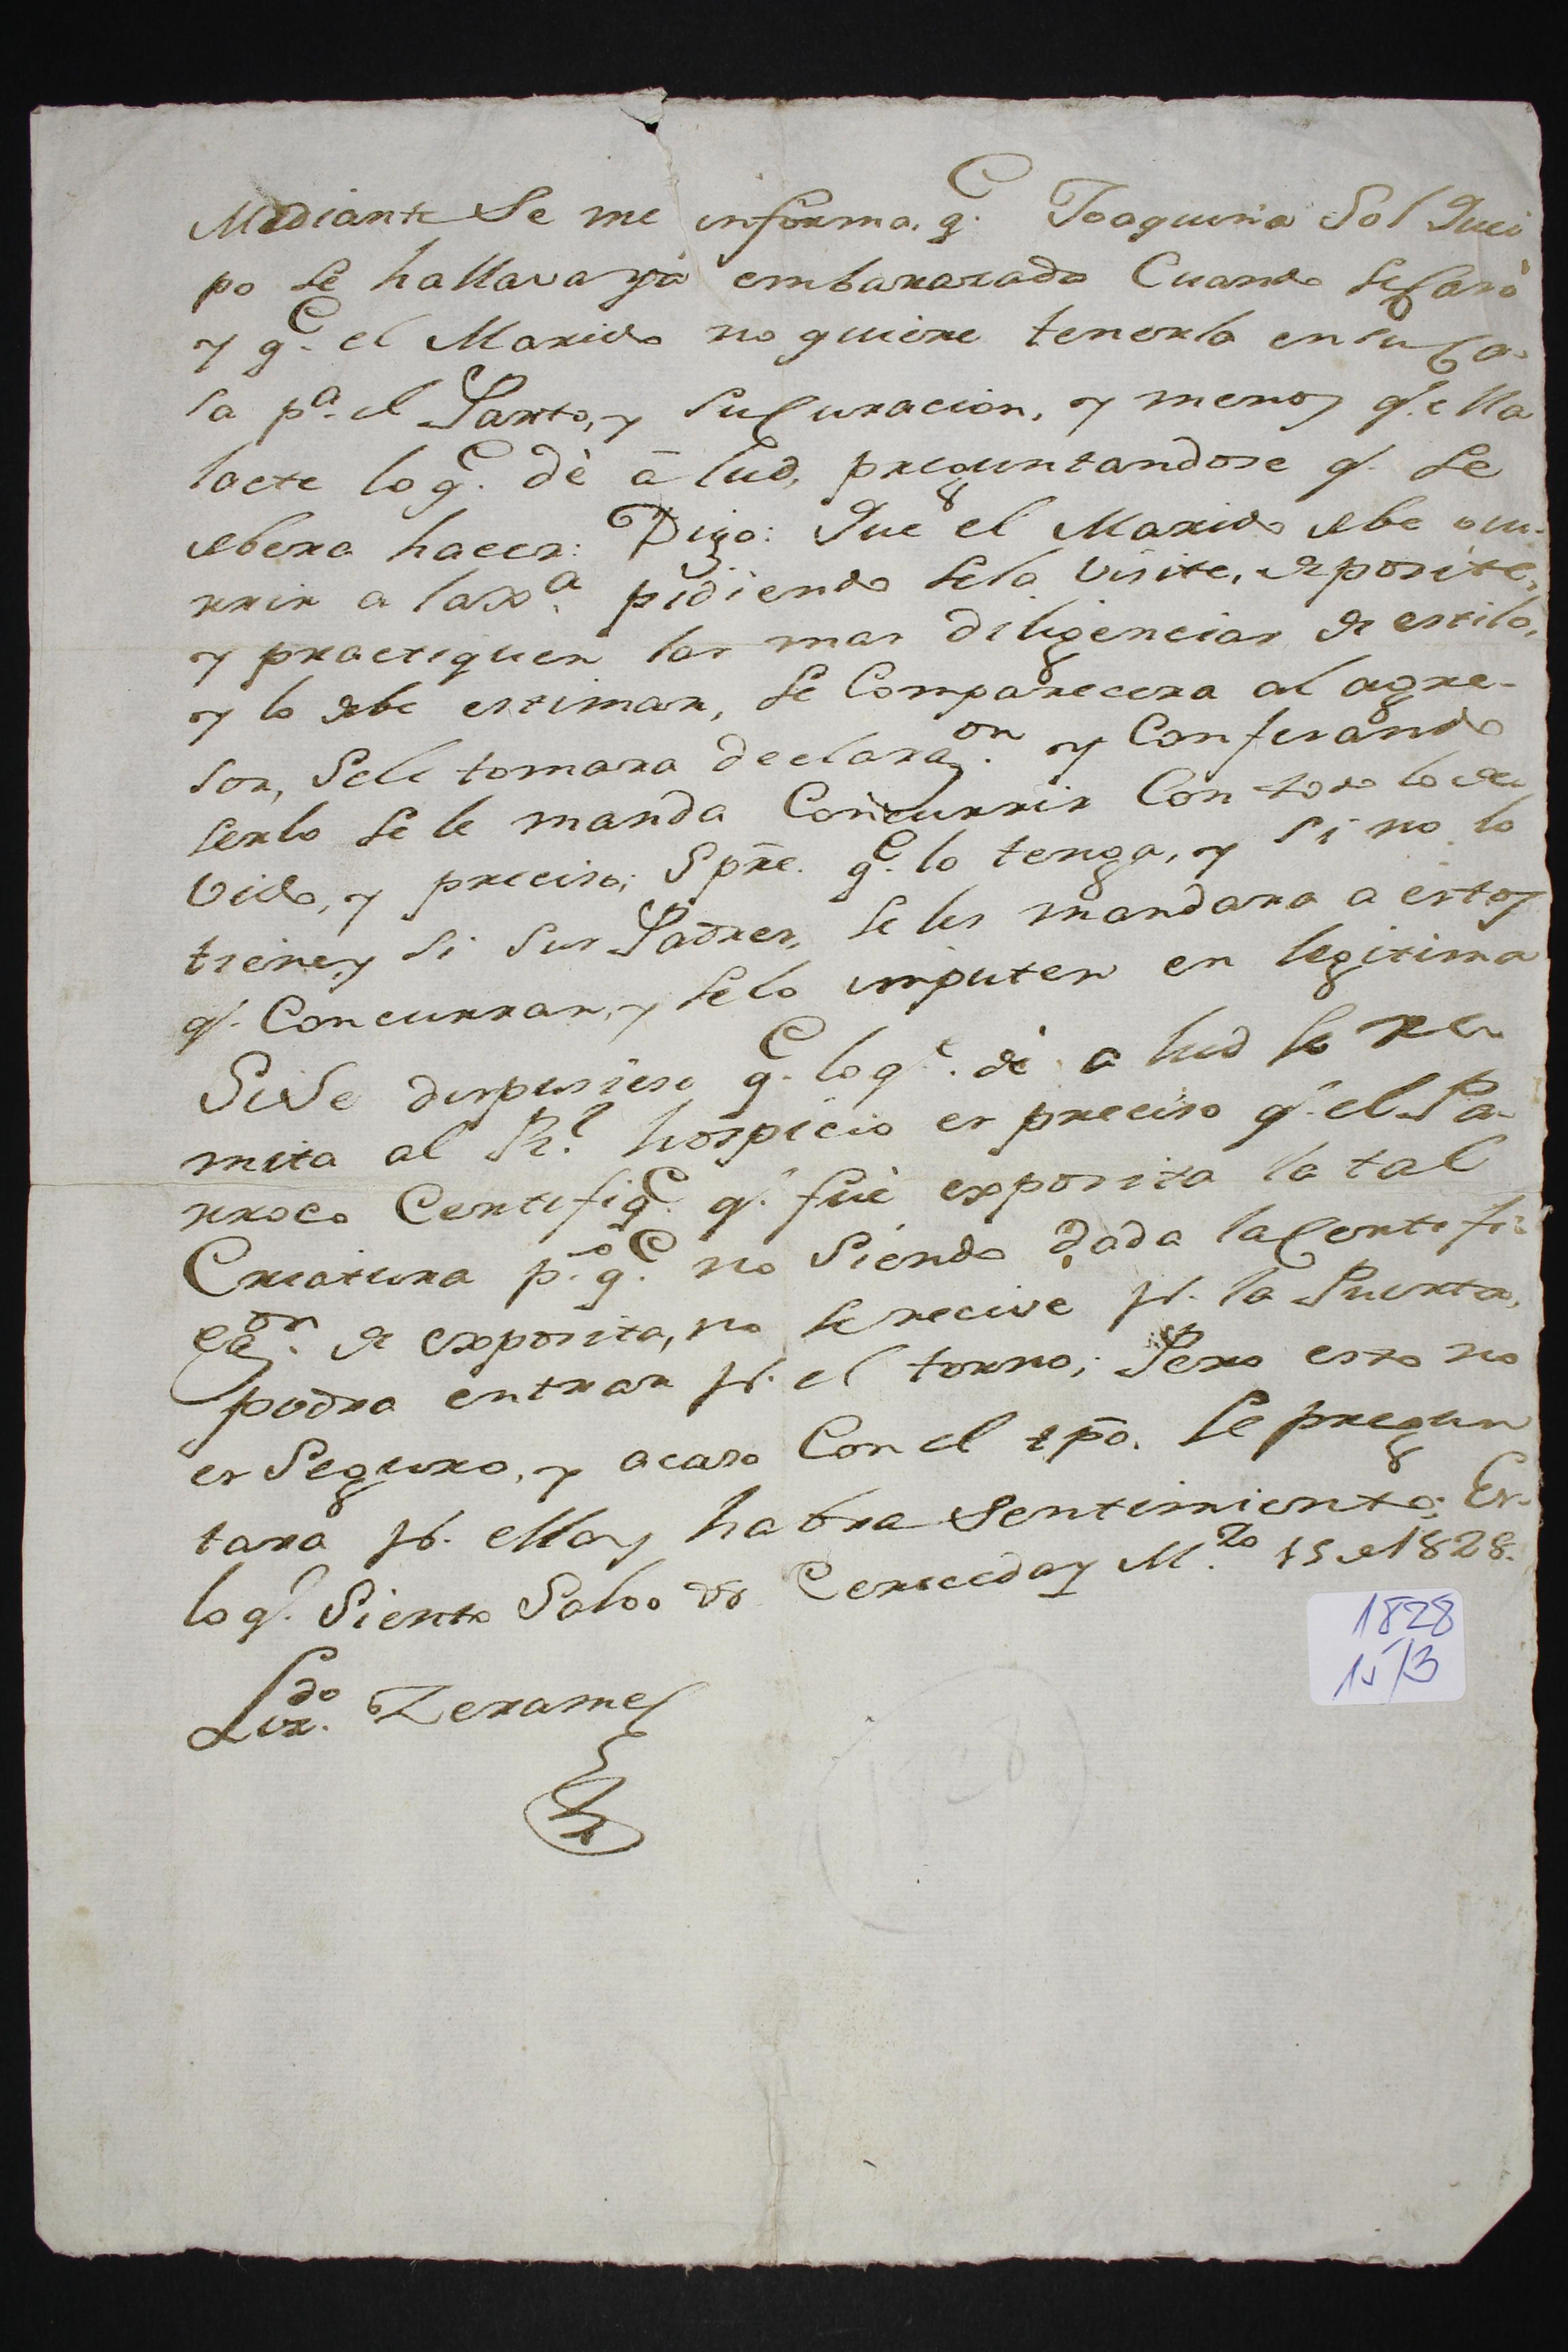 Mediante Se me informa, q.e Joaquina Sol Quei
po se hallava yà embarazada Cuando seCasò
y q.e el Marido no quiere tenerla en suCa-
sa p.a el Parto, y suCuracion, y menos q.e ella
lacte lo q.e dè â luz, preguntandose q.e se
debera hacer: Digo: Que el Marido debe ocu-
rrir a la Xa. pidiendo sela visite, deposite,
y practiquen las mas diligencias de estilo,
y lo debe estimar, se Comparecera al agre-
sor, Sele tomara declaraz.on y Confesando
serlo se le manda Concurrir Con todo lo de
vido, y preciso; Spre. q.e lo tenga, y si no lo
tiene, y si sus Padres, se les mandara a estos
q.e Concurran, y selo imputen en legitima
SiSe dispusiese q.e lo q.e dè a luz se re-
mita al R.l hospicio es preciso q.e el Pa-
rroco Certifiq.e q.e fuè exposita la tal
Criatura p.o q.e no Siendo dada laCertifi-
caz.on de exposita, no se recive p.r la Puerta,
podra entrar p.r el torno; Pero esto no
es Seguro, y acaso Con el tpō. se pregun
tara p.r ella y habra Sentimiento; Es-
lo q.e Siento Salvo Cereceda y M.zo 15 de 1828.
Liz.do Zerame
1828
15/3